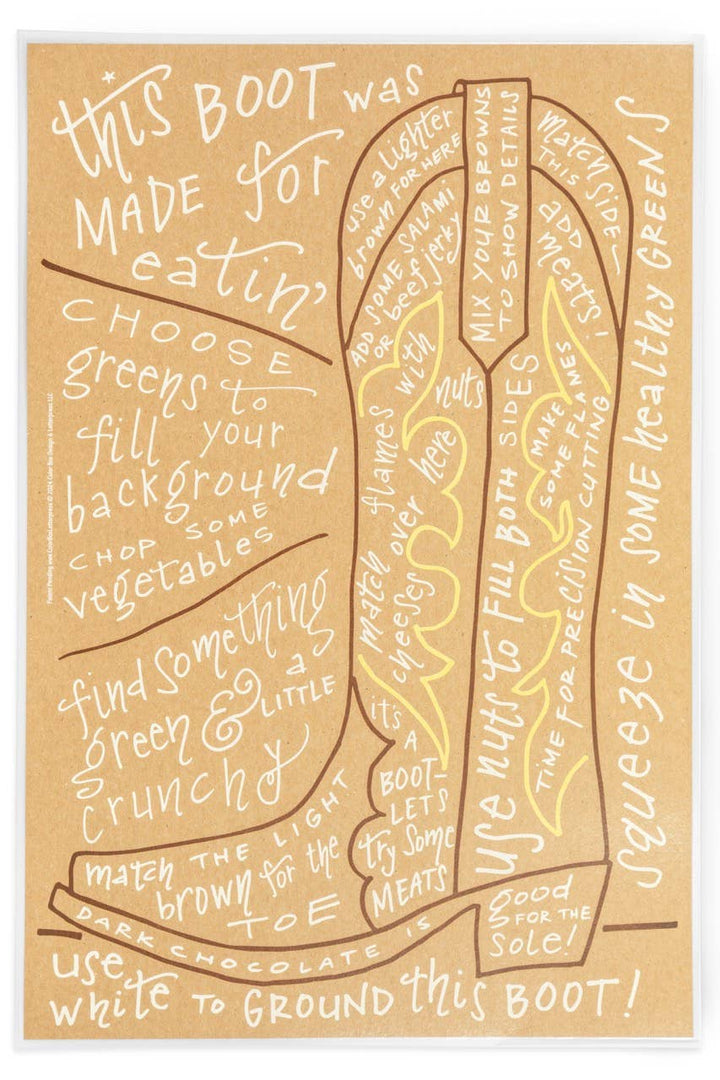 this BOOT was
MADE for
eatin'
CHOOSE
greens to
fill your
background
CHOP SOME
vegetables
find something
green & a
LITTLE
crunchy
use a lighter
brown FOR HERE
ADD SOME SALAMI
OR beef jerky
MIX YOUR BROWNS
TO SHOW DETAILS
Match SIDE—
THIS
ADD
meats!
match flames with
cheeses over here
nuts
use nuts to FILL BOTH SIDES
MAKE
SOME FLAMES
TIME FOR PRECISION CUTTING
squeeze in SOME healthy GREENS
it's
A
BOOT—
LET'S
try Some
MEATS
match THE LIGHT
brown for the
TOE
DARK CHOCOLATE IS
good
FOR THE
Sole!
use
white TO GROUND this BOOT!
Patent Pending www.ColorBoxLetterpress © 2024 Color Box Design & Letterpress LLC